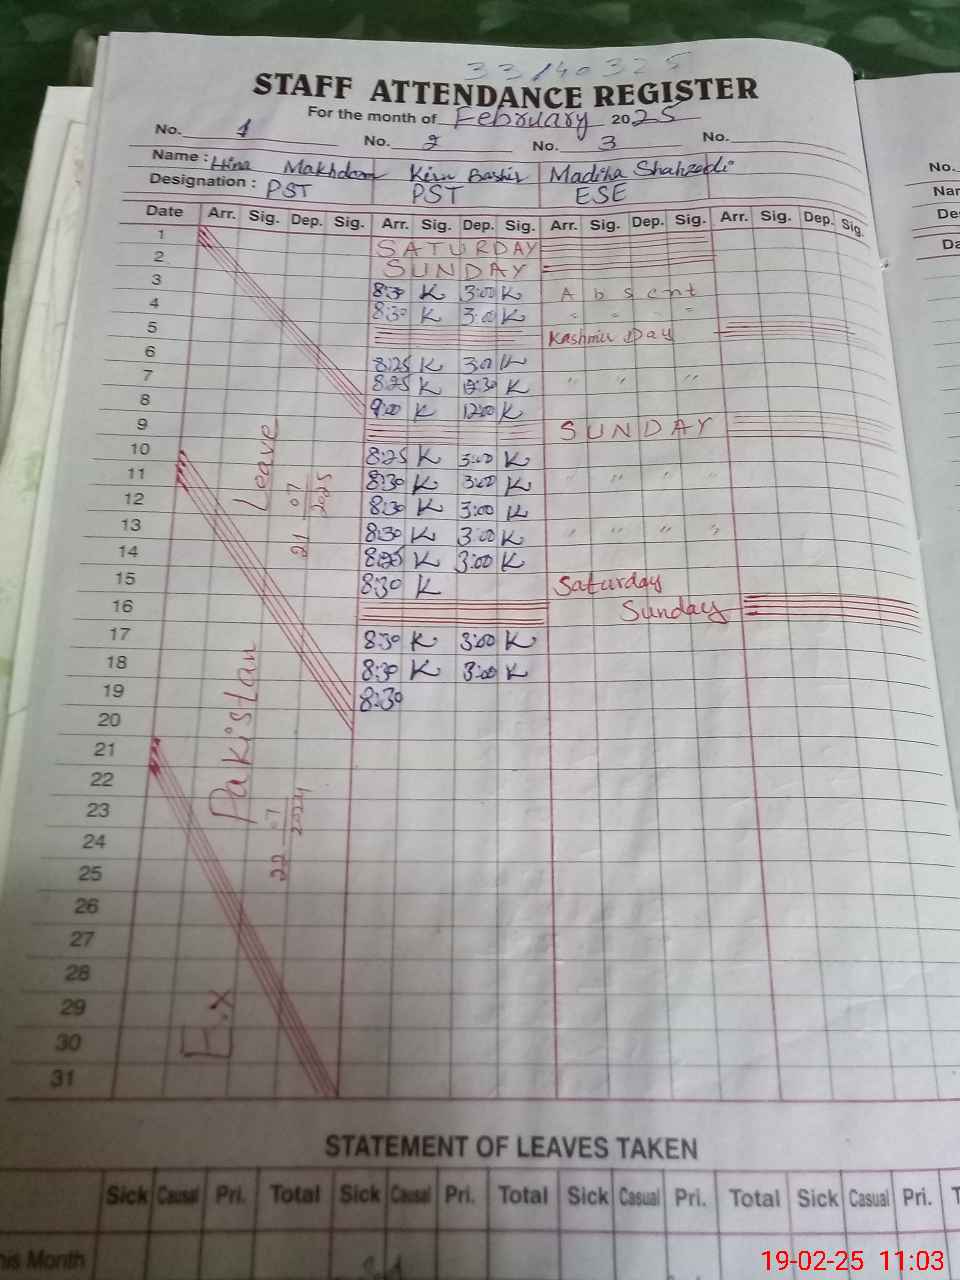 33140325
STAFF ATTENDANCE REGISTER
For the month of February 2025
No. 1 No. 2 No. 3 No.
Name : Hina Makhdom Kirn Bashir Madiha Shahzadi
Designation : PST PST ESE
Date Arr. Sig. Dep. Sig. Arr. Sig. Dep. Sig. Arr. Sig. Dep. Sig. Arr. Sig. Dep. Sig.
1 SATURDAY
2 SUNDAY
3 8:30 K 3:00 K Absent
4 8:30 K 3:00 K " " " "
5 Kashmir Day
6 8:25 K 3:00 K
7 8:25 K 12:30 K " " "
8 9:00 K 12:00 K
9 SUNDAY
10 8:25 K 3:00 K
11 8:30 K 3:00 K " " " "
12 8:30 K 3:00 K
13 8:30 K 3:00 K " " " "
14 8:25 K 3:00 K
15 8:30 K Saturday
16 Sunday
17 8:30 K 3:00 K
18 8:30 K 3:00 K
19 8:30
20
21
22
23
24
25
26
27
28
29
30
31
Ex Pakistan Leave
22 07 2024
21 07 2025
STATEMENT OF LEAVES TAKEN
Sick Casual Pri. Total Sick Casual Pri. Total Sick Casual Pri. Total Sick Casual Pri. T
his Month
No.
Nar
De
Da
19-02-25 11:03